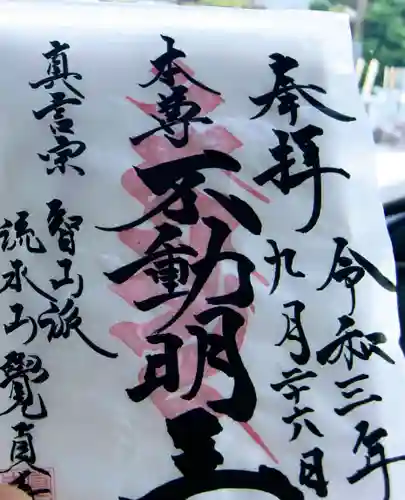 奉拝
令和三年
九月二十六日
本尊
不動明王
真言宗
智山派
流水山覺貞寺